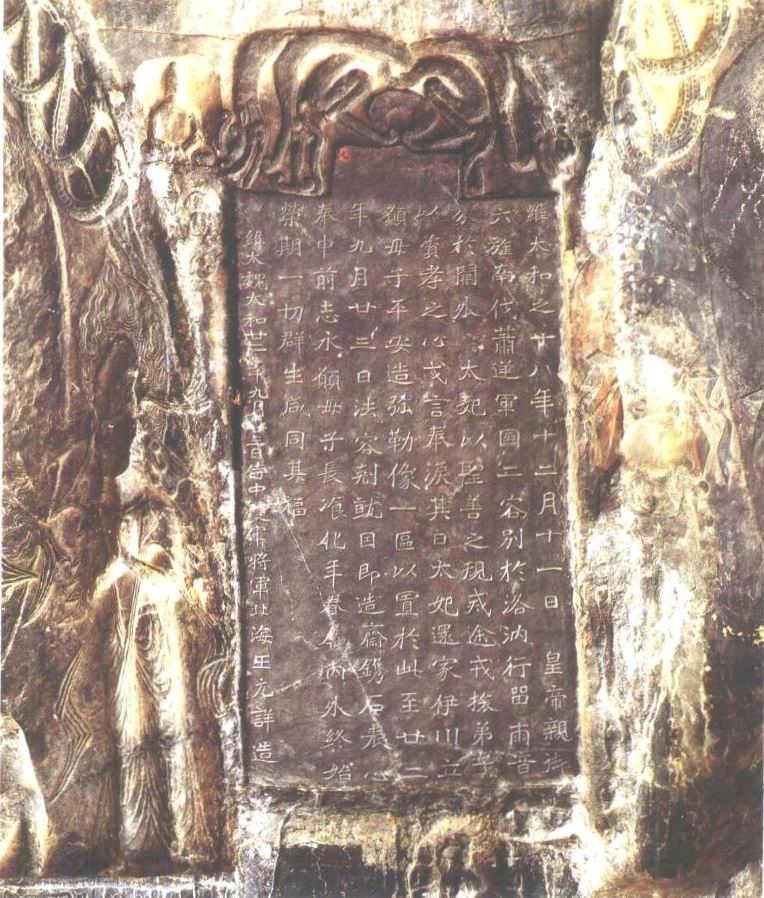 維太和之十八年十二月十一日 皇帝親御
六旌南伐蕭逆軍國二容別於洛汭行留両音
分於闕外 太妃以聖善之規戒途戎旅弟子
以資孝之心戈言奉淚其日太妃還家伊川立
願母子平安造弥勒像一區以置於此至廿二
年九月廿三日法容剋就因即造齋鐫石表心
奉申前志永願母子長瞰化年眷屬內外終始
榮期一切群生咸同其福
維大魏太和廿二年九月廿三日侍中護軍將軍北海王元詳造